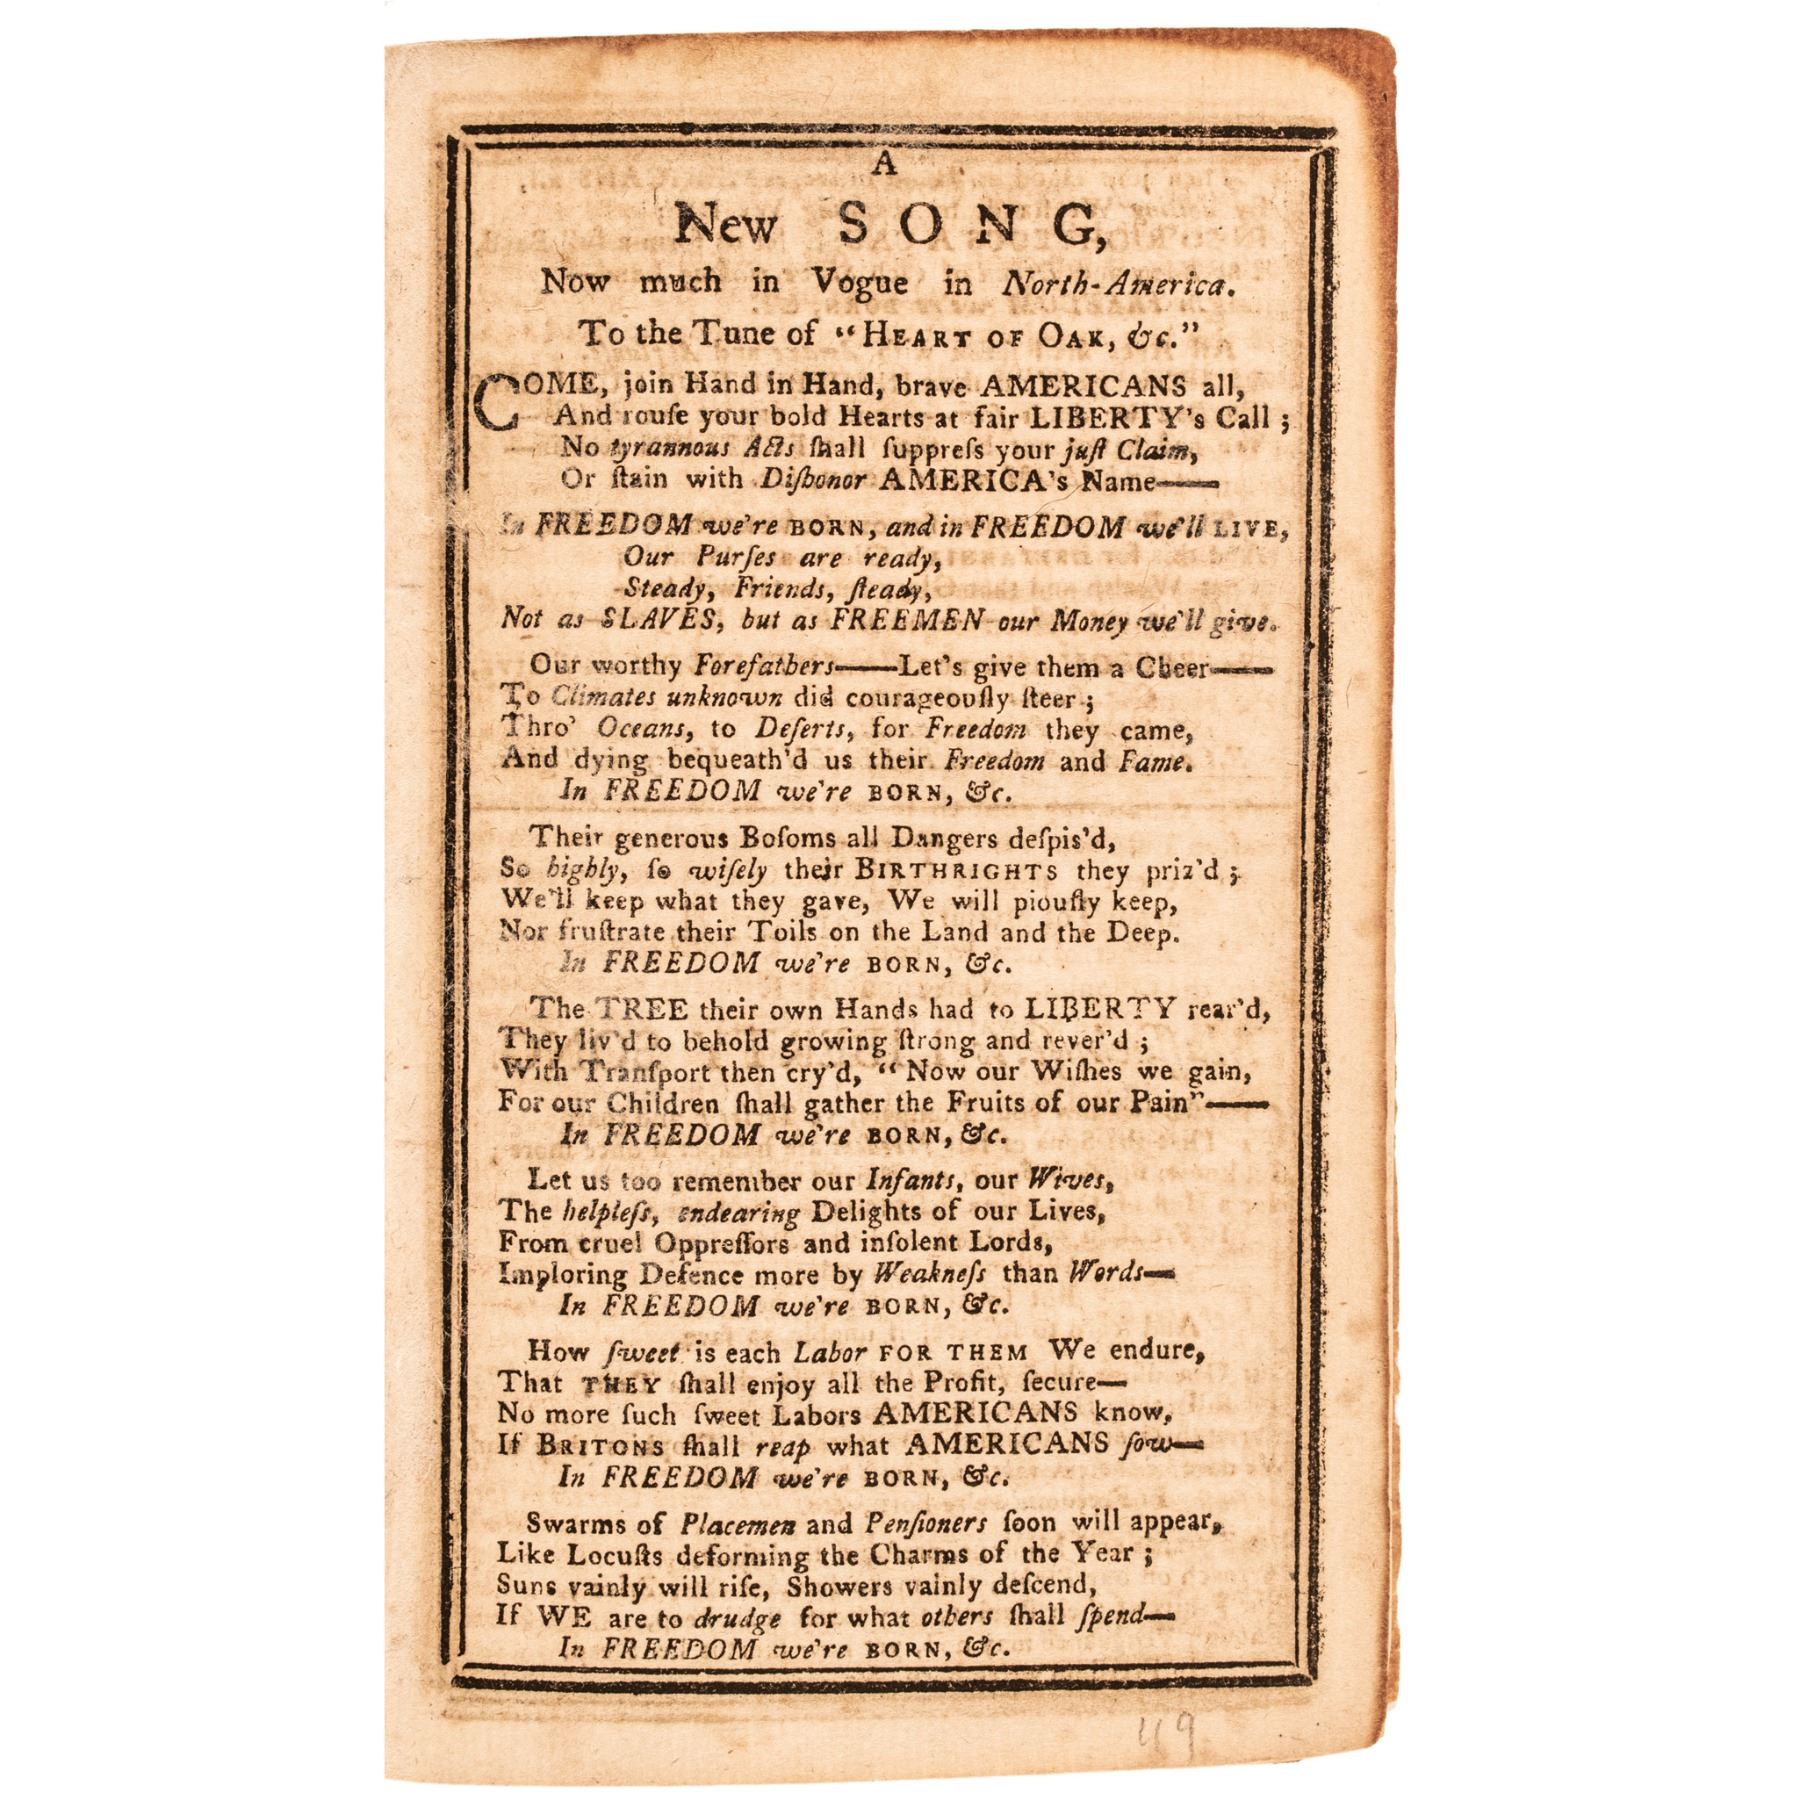 A
New SONG,
Now much in Vogue in North-America.
To the Tune of "HEART OF OAK, &c."
COME, join Hand in Hand, brave AMERICANS all,
And rouſe your bold Hearts at fair LIBERTY's Call;
No tyrannous Acts ſhall ſuppreſs your juſt Claim,
Or ſtain with Diſhonor AMERICA's Name——
In FREEDOM we're BORN, and in FREEDOM we'll LIVE,
Our Purſes are ready,
Steady, Friends, ſteady,
Not as SLAVES, but as FREEMEN our Money we'll give.
Our worthy Forefathers——Let's give them a Cheer——
To Climates unknown did courageouſly ſteer;
Thro' Oceans, to Deſerts, for Freedom they came,
And dying bequeath'd us their Freedom and Fame.
In FREEDOM we're BORN, &c.
Their generous Boſoms all Dangers deſpis'd,
So highly, ſo wiſely their BIRTHRIGHTS they priz'd;
We'll keep what they gave, We will piouſly keep,
Nor fruſtrate their Toils on the Land and the Deep.
In FREEDOM we're BORN, &c.
The TREE their own Hands had to LIBERTY rear'd,
They liv'd to behold growing ſtrong and rever'd;
With Tranſport then cry'd, "Now our Wiſhes we gain,
For our Children ſhall gather the Fruits of our Pain"——
In FREEDOM we're BORN, &c.
Let us too remember our Infants, our Wives,
The helpleſs, endearing Delights of our Lives,
From cruel Oppreſſors and inſolent Lords,
Imploring Defence more by Weakneſs than Words—
In FREEDOM we're BORN, &c.
How ſweet is each Labor FOR THEM We endure,
That THEY ſhall enjoy all the Profit, ſecure—
No more ſuch ſweet Labors AMERICANS know,
If BRITONS ſhall reap what AMERICANS ſow—
In FREEDOM we're BORN, &c.
Swarms of Placemen and Penſioners ſoon will appear,
Like Locuſts deforming the Charms of the Year;
Suns vainly will riſe, Showers vainly deſcend,
If WE are to drudge for what others ſhall ſpend—
In FREEDOM we're BORN, &c.
49